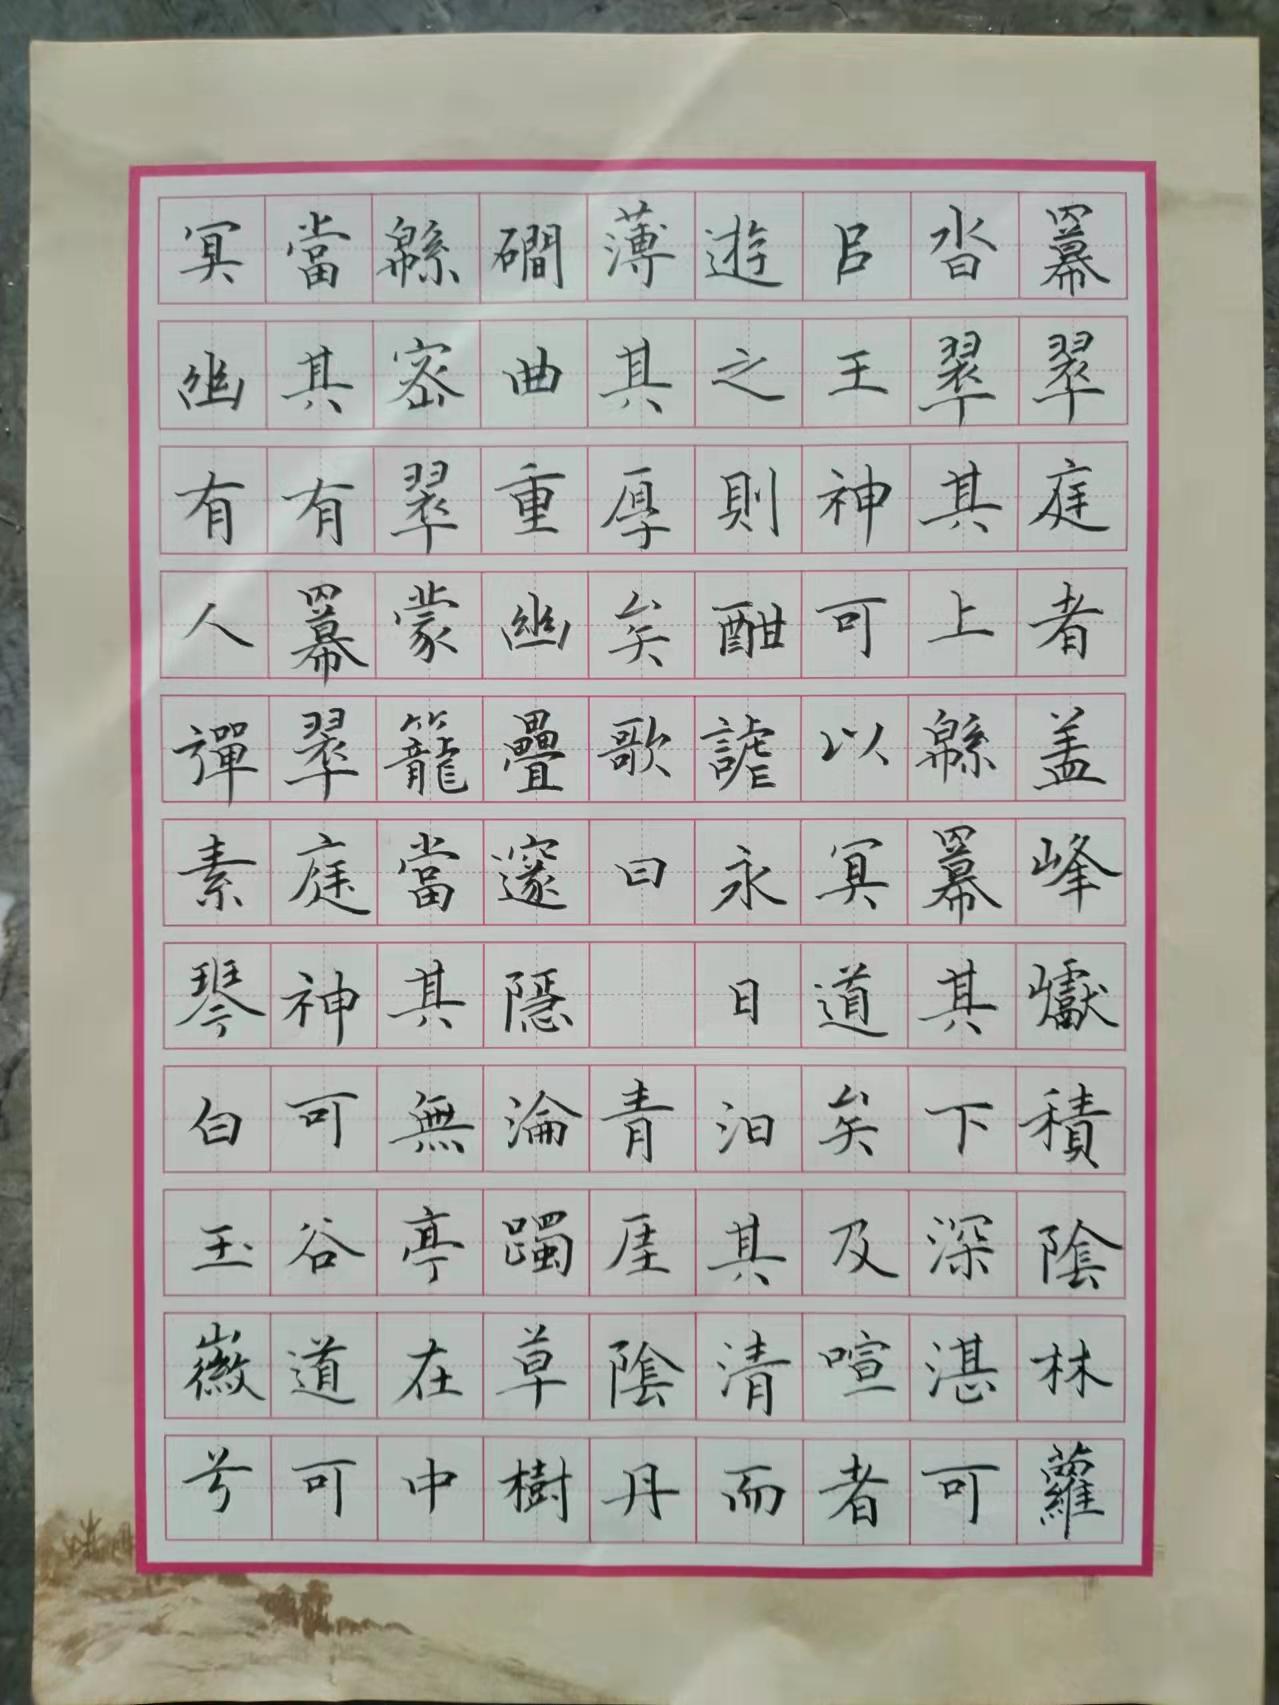 羃翠庭者盖峰巘積陰林蘿
沓翠其上緜羃其下深湛可
㠯王神可以冥道矣及喧者
遊之則酣謔永日汩其清而
薄其厚矣歌曰青厓陰丹
磵曲重幽疊邃隱淪躅草樹
緜密翠蒙籠當其無亭在中
當其有羃翠庭神可谷道可
冥幽有人彈素琴白玉徽兮